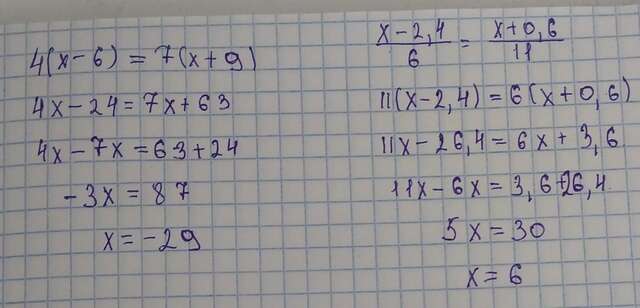 4(x-6) = 7(x+9)
4x-24=7x+63
4x-7x=63+24
-3x=87
x=-29
(x-2,4)/6 = (x+0,6)/11
11(x-2,4)=6(x+0,6)
11x-26,4=6x+3,6
11x-6x=3,6+26,4
5x=30
x=6